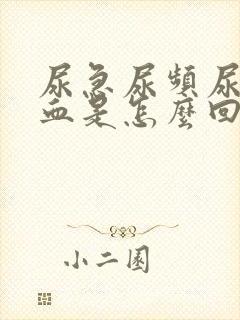 尿急尿頻尿
血是怎麼回
小二園